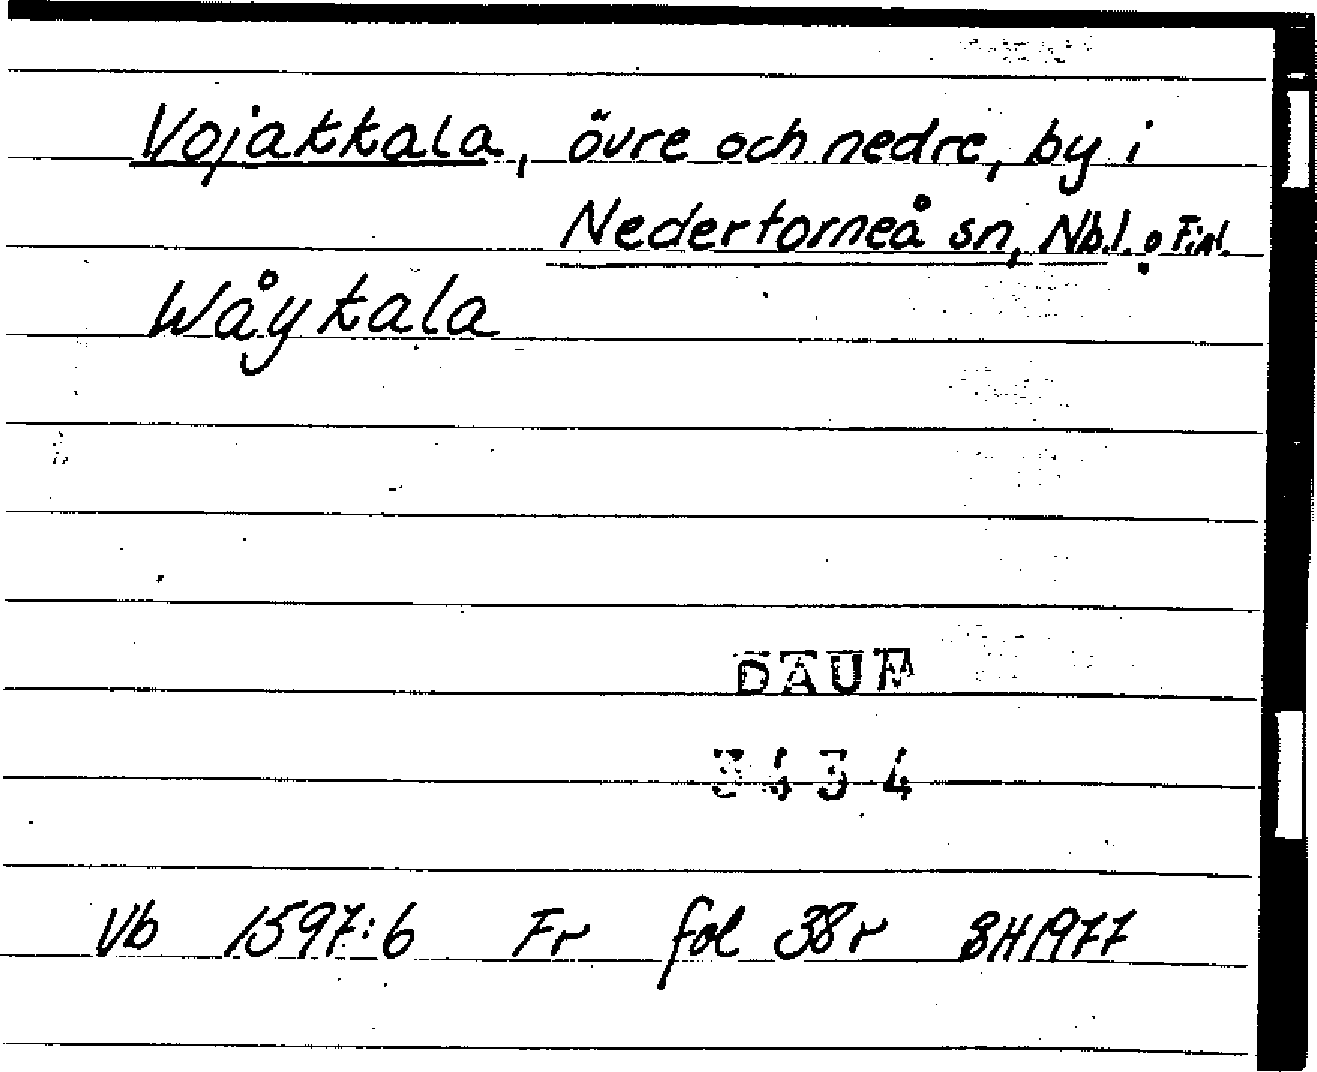 Vojakkala, övre och nedre, by i
Nedertorneå sn, Nb.l. o Finl.
Wåykala
DAUM
3434
Vb 1597:6 Fr fol 38r BH1977